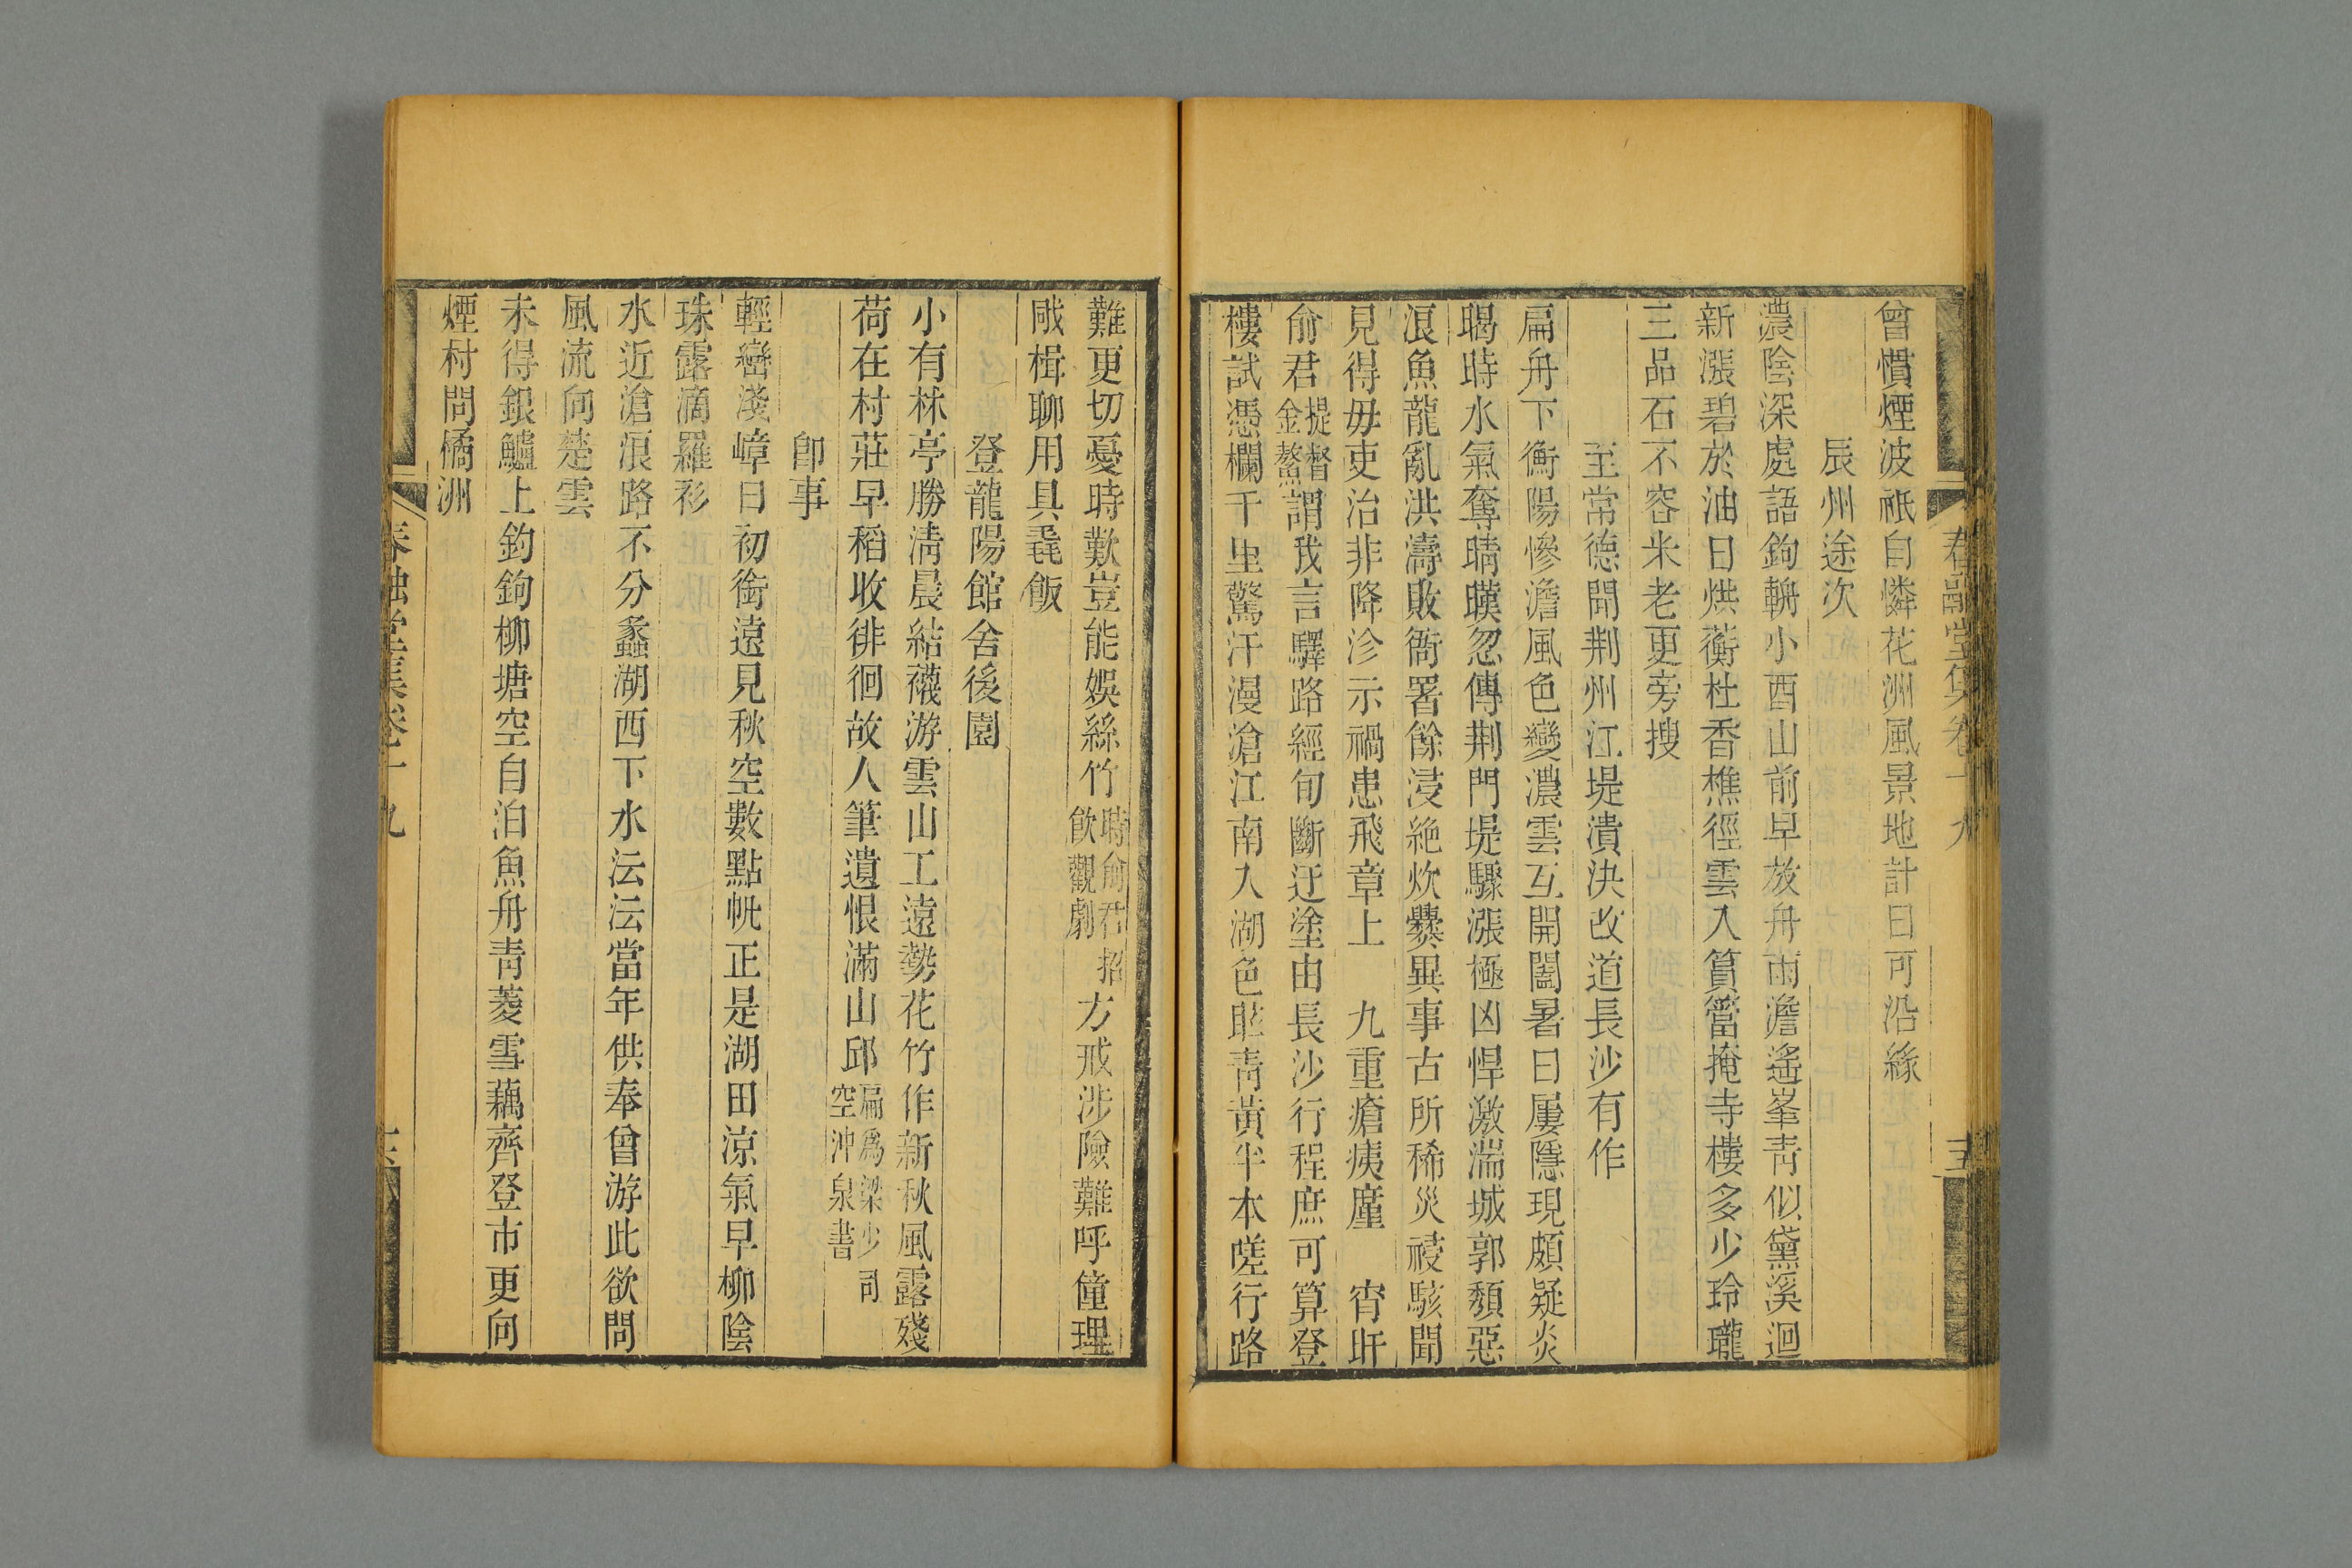 春融堂集卷十九
曾慣煙波祇自憐花洲風景地計日可沿緣
辰州途次
濃陰深處語鉤輈小酉山前早放舟雨澹遙峯靑似黛溪迴
新漲碧於油日烘蘅杜香樵徑雲入篔簹掩寺樓多少玲瓏
三品石不容米老更旁搜
至常德聞荆州江堤潰決改道長沙有作
扁舟下衡陽慘澹風色變濃雲互開闔暑日屢隱現頗疑炎
暍時水氣奪晴暵忽傳荆門堤驟漲極凶悍激湍城郭頽惡
浪魚龍亂洪濤敗衙署餘浸絶炊爨異事古所稀災祲駭聞
見得毋吏治非降沴示禍患飛章上　九重瘡痍廑　宵旰
俞君提督金鰲謂我言驛路經旬斷迂塗由長沙行程庶可算登
樓試憑欄千里驚汗漫滄江南入湖色眂靑黃半本嗟行路
難更切憂時歎豈能娛絲竹時俞君招飮觀劇方戒涉險難呼僮理
戙楫聊用具毳飯
登龍陽館舍後園
小有林亭勝淸晨結襪游雲山工遠勢花竹作新秋風露殘
荷在村莊早稻收徘徊故人筆遺恨滿山邱扁爲梁少司空沖泉書
卽事
輕巒淺嶂日初銜遠見秋空數點帆正是湖田涼氣早柳陰
珠露滴羅衫
水近滄浪路不分蠡湖西下水沄沄當年供奉曾游此欲問
風流向楚雲
未得銀鱸上釣鉤柳塘空自泊魚舟靑菱雪藕齊登市更向
煙村問橘洲
春融堂集卷十九